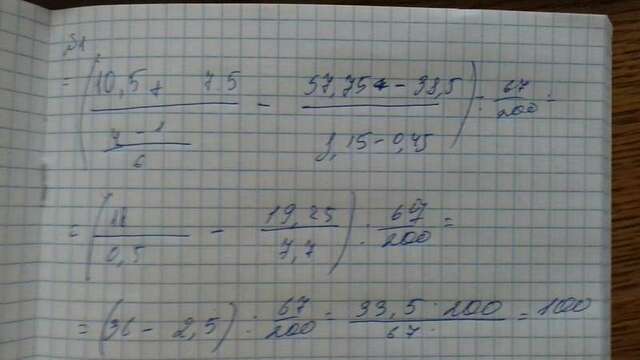 = (10,5 + 7.5 / (4 - 1 / 6) - 57,75 - 38,5 / 8,15 - 0,45) : 67/200 =
= (18 / 0,5 - 19,25 / 7,7) : 67/200 =
= (36 - 2,5) : 67/200 = 33,5 · 200 / 67 = 100